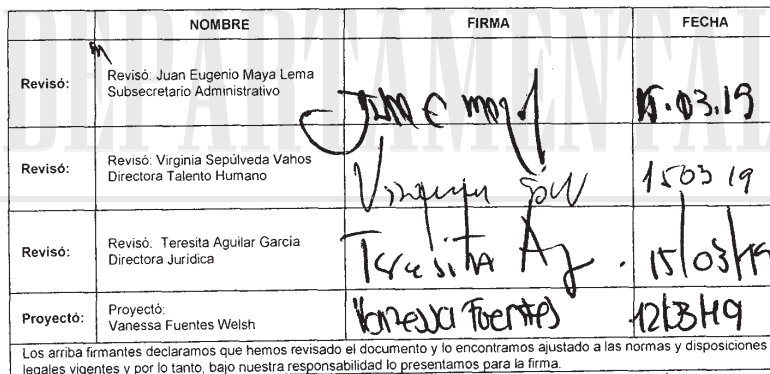 DEPARTAMENTAL
NOMBRE FIRMA FECHA
Revisó: Revisó: Juan Eugenio Maya Lema
Subsecretario Administrativo
15.03.19
Revisó: Revisó: Virginia Sepúlveda Vahos
Directora Talento Humano
1503 19
Revisó: Revisó: Teresita Aguilar García
Directora Jurídica
Teresita 15/03/19
Proyectó: Proyectó:
Vanessa Fuentes Welsh
Vanessa Fuentes 12/03/19
Los arriba firmantes declaramos que hemos revisado el documento y lo encontramos ajustado a las normas y disposiciones
legales vigentes y por lo tanto, bajo nuestra responsabilidad lo presentamos para la firma.